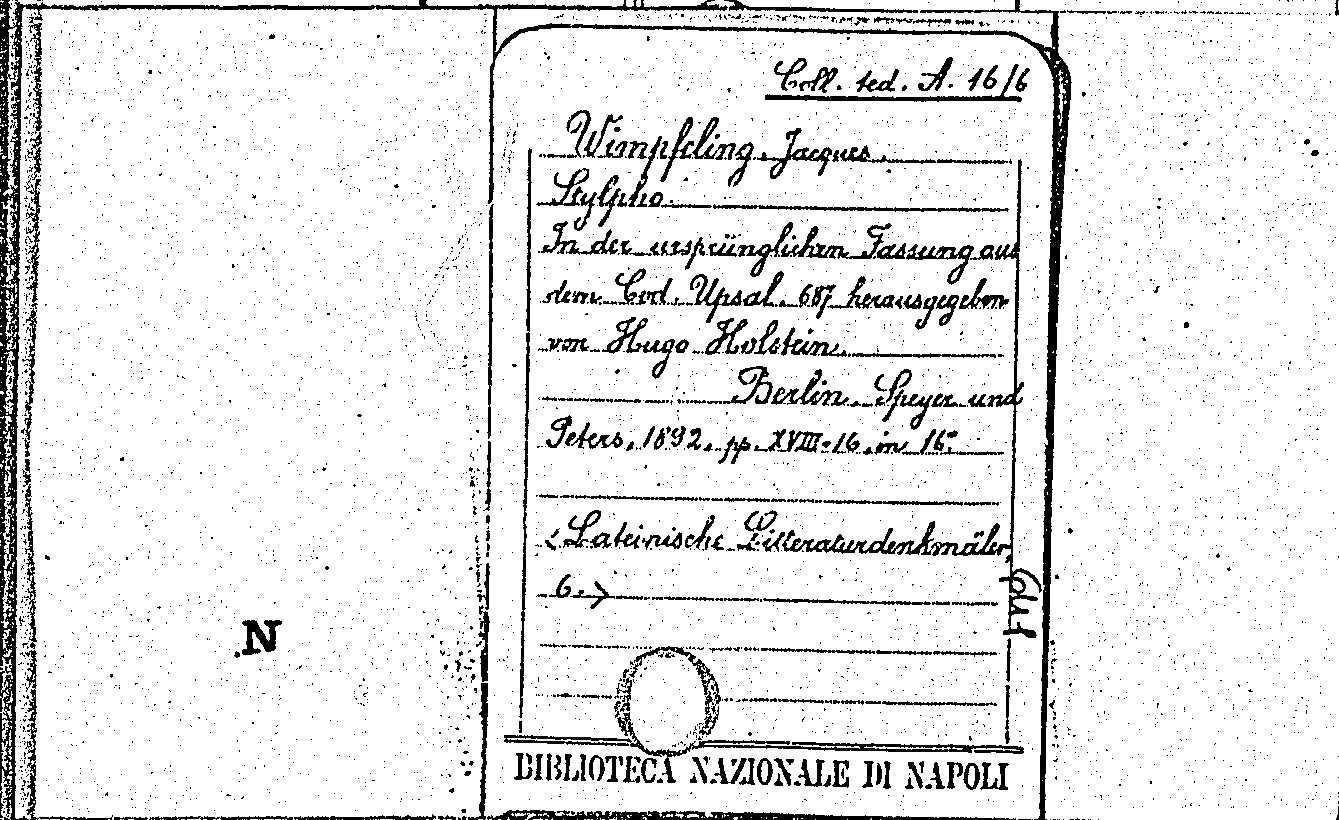 Coll. ted. A. 16/6
Wimpfeling, Jacques.
Stylpho.
In der ursprünglichen Fassung aus
dem Cod. Upsal. 687 herausgegeben
von Hugo Holstein.
Berlin, Speyer und
Peters, 1892, pp. XVIII-16, in 16º
<Lateinische Litteraturdenkmäler
6.>
N
BIBLIOTECA NAZIONALE DI NAPOLI